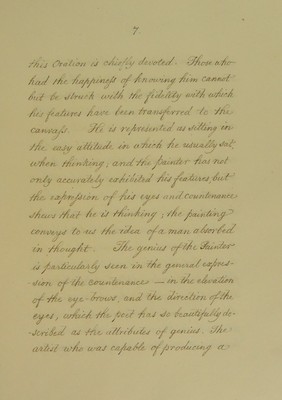 7
this Oration is chiefly devoted. Those who
had the happiness of knowing him cannot
but be struck with the fidelity with which
his features have been transferred to the
canvass. He is represented as sitting in
the easy attitude in which he usually sat,
when thinking; and the painter has not
only accurately exhibited his features but
the expression of his eyes and countenance
shews that he is thinking; the painting
conveys to us the idea of a man absorbed
in thought. The genius of the Painter
is particularly seen in the general expres-
-sion of the countenance — in the elevation
of the eye-brows, and the direction of the
eyes, which the poet has so beautifully de-
-scribed as the attributes of genius. The
artist who was capable of producing a